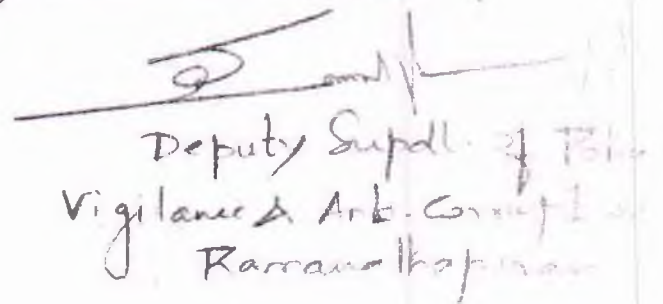 Deputy Supdt. of
Vigilance & Anti-Corruption
Ramanathapuram